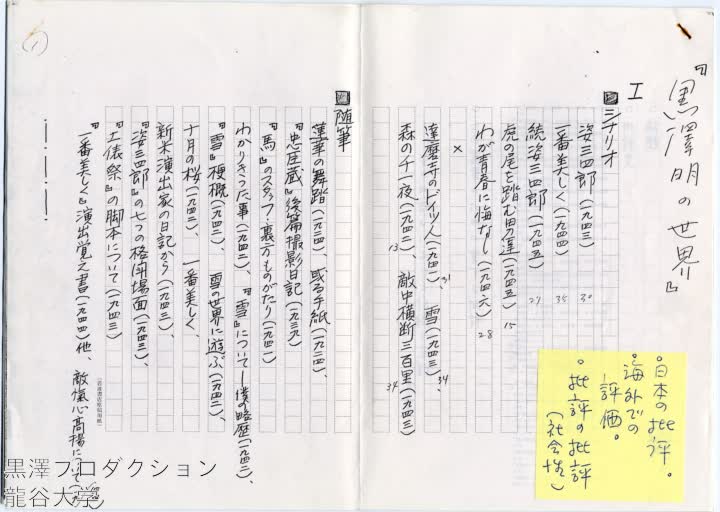 『黒澤明の世界』
I
シナリオ
姿三四郎(一九四三)
30
一番美しく(一九四四)
35
続姿三四郎(一九四五)
27
虎の尾を踏む男達(一九四五)
15
わが青春に悔なし(一九四六)
28
×
達磨寺のドイツ人(一九四一)、雪(一九四三)、
31
34
森の千一夜(一九四二)、敵中横断三百里(一九四三)
13
34
随筆
蓮華の舞踏(一九二四)、或る手紙(一九二四)、
『忠臣蔵』後篇撮影日記(一九三九)
『馬』のスタッフ・裏方ものがたり(一九四一)
わかりきった事(一九四二)、『雪』について―僕の略歴(一九四二)、
『雪』梗概(一九四二)、雪の世界に遊ぶ(一九四二)、
十月の桜(一九四二)、一番美しく、
新米演出家の日記から(一九四三)、
『姿三四郎』の七つの格闘場面(一九四三)、
『土俵祭』の脚本について(一九四三)
『一番美しく』演出覚之書(一九四四)他、敵愾心高揚について
(1)
・日本の批評。
・海外での
評価。
・批評の批評
(社会性)
(岩波書店原稿用紙)
黒澤プロダクション
龍谷大学